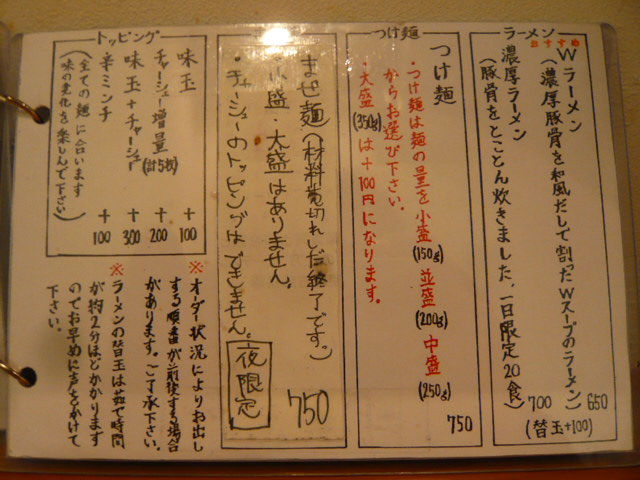 ラーメン
おすすめ
Wラーメン
(濃厚豚骨を和風だしで割ったWスープのラーメン) 650
濃厚ラーメン
(豚骨をとことん炊きました、一日限定20食) 700
(替玉+100)
つけ麺
つけ麺
・つけ麺は麺の量を小盛(150g) 並盛(200g) 中盛(250g)
からお選び下さい。
・大盛(350g)は+100円になります。
750
まぜ麺(材料売切れしだい終了です。)
・小盛・大盛はありません。
・チャーシューのトッピングはできません。
夜限定
750
トッピング
味玉 +100
チャーシュー増量(計5枚) +200
味玉+チャーシュー +300
辛ミンチ +100
(全ての麺に合います
味の変化を楽しんで下さい)
※オーダー状況によりお出し
する順番が前後する場合
があります。ご了承下さい。
※ラーメンの替玉は茹で時間
が約2分ほどかかります
のでお早めに声をかけて
下さい。